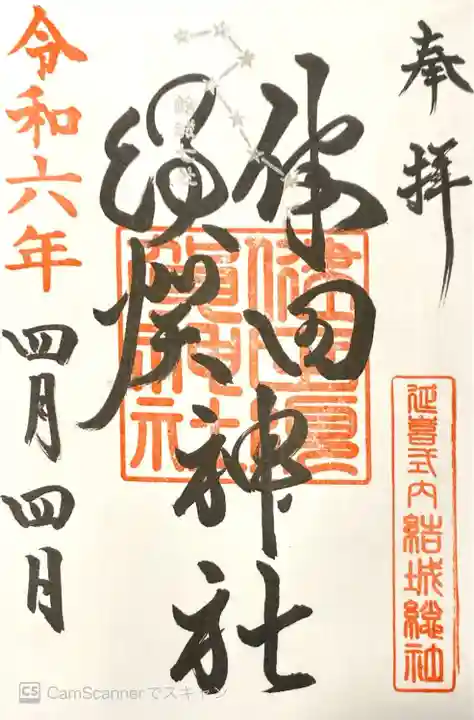 奉拝
延喜式内結城総社
健田
須賀
神社
健田須
賀神社
令和六年
四月四月
CS CamScannerでスキャン